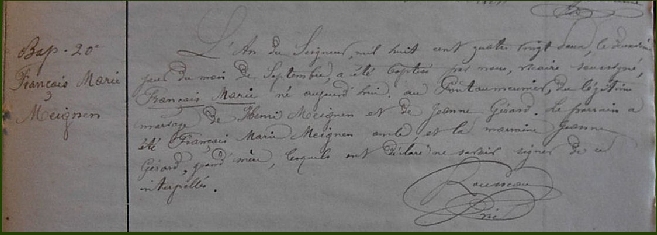 Bap. 20e
François Marie
Meignen
L'An du Seigneur, mil huit cent quatre vingt deux, le deuxième
jour du mois de Septembre, a été baptisé par nous, vicaire soussigné,
François Marie né aujourd'hui, au du légitime
mariage de Henri Meignen et de Jeanne Gérard. Le parrain a
été François Marie Meignen oncle et la marraine Jeanne
Gérard, grand'mère, lesquels ont déclaré ne savoir signer de ce
interpellés.
Rousseau